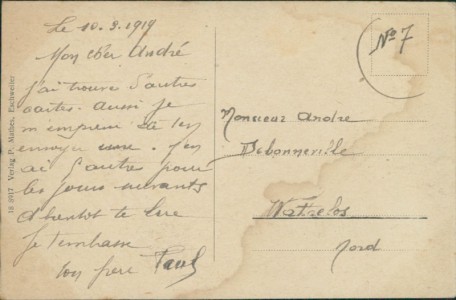 Le 10.3.1919
Mon cher André
j'ai trouvé d'autres
cartes. Aussi je
m'empresse de t'en
envoyer une. J'en
ai d'autres pour
les jours suivants
A bientot te lire
Je t'embrasse
ton frère Paul
No 7
Monsieur Andre
Debonneville
Wattrelos
Nord
18 8917 Verlag P. Mathes, Eschweiler